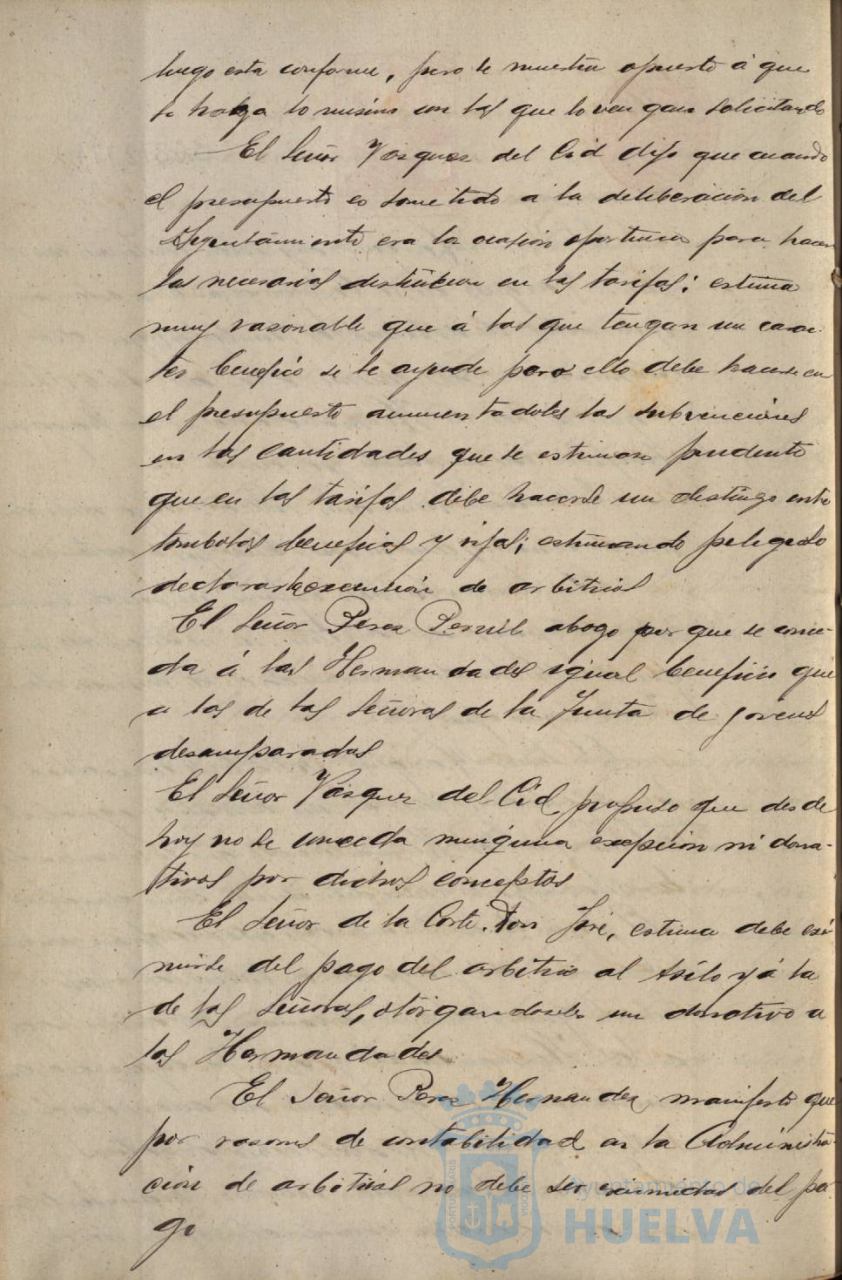 luego esta conforme, pero se muestra opuesto á que
se haga lo mismo con las que lo vengan solicitando
El Señor Vazquez del Cid dijo que cuando
el presupuesto es sometido a la deliberación del
Ayuntamiento era la ocasión oportuna para hacer
las necesarias distincion en las tarifas; estima
muy razonable que á las que tengan un carac-
ter benefico se le ayude pero ello debe hacerse en
el presupuesto aumentadoles las subvenciones
en las cantidades que se estimase prudente
que en las tarifas debe hacerse un distingo entre
tombolas beneficas y rifas; estimando peligroso
declarar la exención de arbitrios
El Señor Perez abogo por que se conce-
da á las Hermandades igual beneficio que
a las de las Señoras de la Junta de jovenes
desamparadas
El Señor Vásquez del Cid, propuso que desde
hoy no se conceda ninguna excepcion ni dona-
tivos por dichos conceptos
El Señor de la Corte, Don José, estima debe exi-
mirse del pago del arbitrio al Asilo y á la
de las Señoras, otorgandoseles un donativo a
las Hermandades
El Señor Perez Hernandez, manifestó que
por razones de contabilidad en la Administra-
ción de arbitrios no debe ser eximidas del pa-
go
Ayuntamiento de
HUELVA